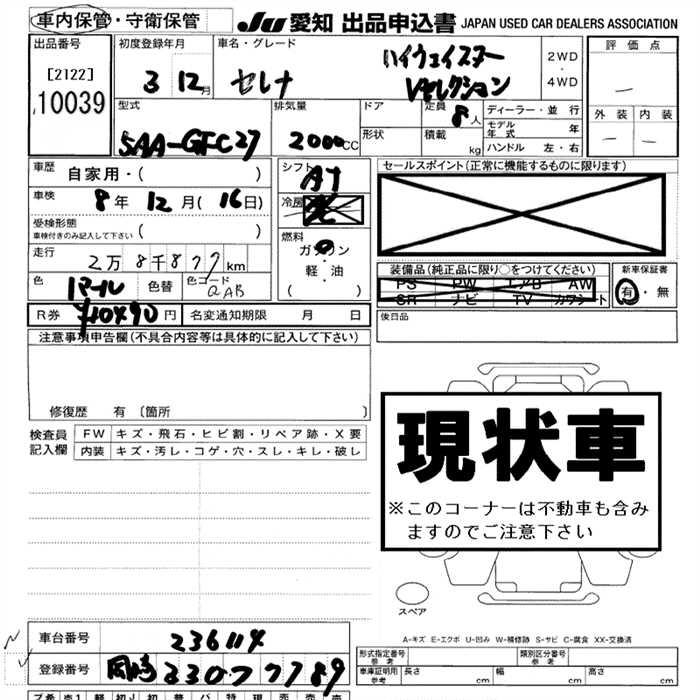 車内保管・守衛保管
JU 愛知 出品申込書 JAPAN USED CAR DEALERS ASSOCIATION
出品番号 初度登録年月 車名・グレード 評価点
[2122] 3 12月 セレナ ハイウェイスター 2WD
・
10039 Vセレクション 4WD
型式 排気量 ドア 定員 8人 ディーラー・並行 外装 内装
5AA-GFC27 2000CC 形状 積載 kg モデル年式 年
ハンドル 左・右
車歴 自家用・( ) シフト AT セールスポイント(正常に機能するものに限ります)
車検 8年 12月(16日) 冷房
受検形態 ( )
車検付きのみ記入して下さい 燃料
走行 2万8千877km ガソリン
・
軽・油
( )
装備品(純正品に限り○をつけてください) 新車保証書
PS PW エアB AW 有・無
SR ナビ TV カワシート
色 色替 色コード QAB
R券 ¥10490円 名変通知期限 月 日 後日品
注意事項申告欄(不具合内容等は具体的に記入して下さい)
修復歴 有 〔箇所 〕
検査員記入欄 FW キズ・飛石・ヒビ割・リペア跡・X要
内装 キズ・汚レ・コゲ・穴・スレ・キレ・破レ
現状車
※このコーナーは不動車も含み
ますのでご注意下さい
スペア
A-キズ E-エクボ U-凹み W-補修跡 S-サビ C-腐食 XX-交換済
車台番号 236114
登録番号 岡崎 230 フ 7789
形式指定番号 参考 類別区分番号 参考
車庫証明用 参考 長さ cm 幅 cm 高さ cm